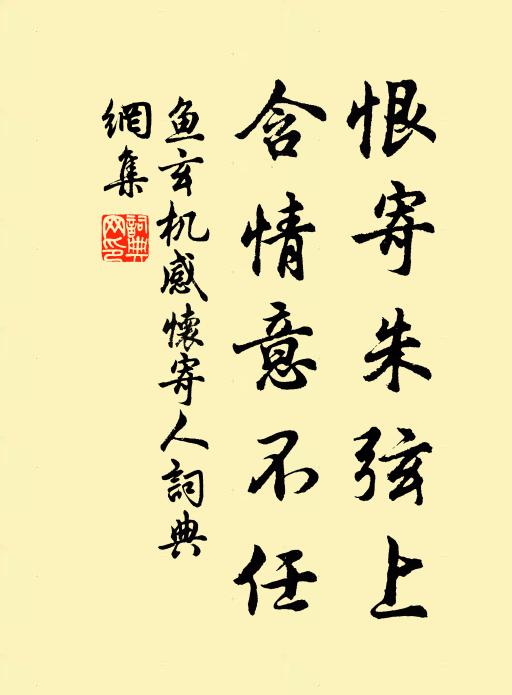 恨寄朱弦上
含情意不任
鱼玄机感懷寄人詞典
網集
詞典网印